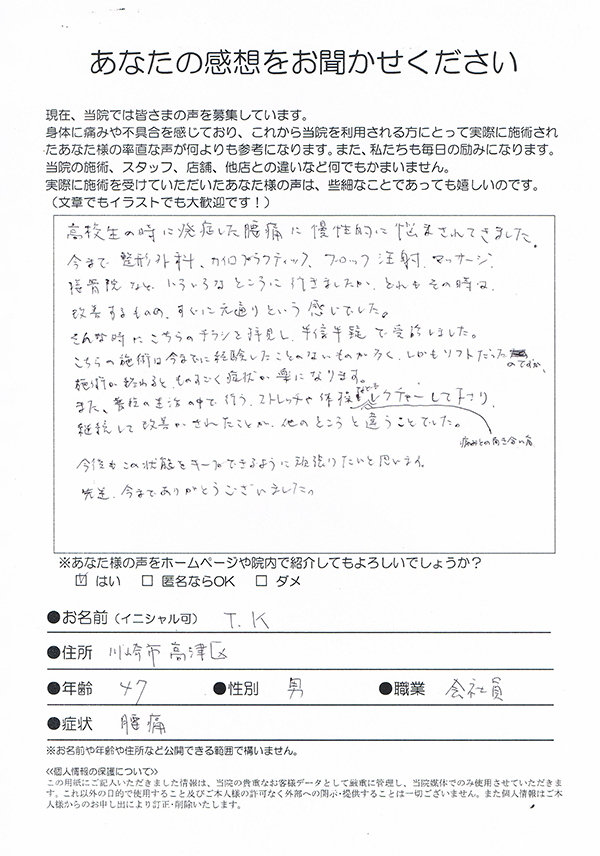 あなたの感想をお聞かせください
現在、当院では皆さまの声を募集しています。
身体に痛みや不具合を感じており、これから当院を利用される方にとって実際に施術され
たあなた様の率直な声が何よりも参考になります。また、私たちも毎日の励みになります。
当院の施術、スタッフ、店舗、他店との違いなど何でもかまいません。
実際に施術を受けていただいたあなた様の声は、些細なことであっても嬉しいのです。
(文章でもイラストでも大歓迎です!)
高校生の時に発症した腰痛に慢性的に悩まされてきました。
今まで整形外科、カイロプラクティック、ブロック注射、マッサージ、
接骨院など、いろいろなところに行きましたが、どれもその時は
改善するものの、すぐに元通りという感じでした。
そんな時にこちらのチラシを拝見し、半信半疑で受診しました。
こちらの施術は今までに経験したことのないものが多く、しかもソフトだったのですが、
施術が終わると、ものすごく症状が楽になります。
また、普段の生活の中で行う、ストレッチや体操などをレクチャーして下さり、
痛みとの向き合い方
継続して改善がされたことが、他のところと違うことでした。
今後もこの状態をキープできるように頑張りたいと思います。
先生、今までありがとうございました。
※あなた様の声をホームページや院内で紹介してもよろしいでしょうか?
☑ はい □ 匿名ならOK □ ダメ
●お名前(イニシャル可) T.K
●住所 川崎市高津区
●年齢 47 ●性別 男 ●職業 会社員
●症状 腰痛
※お名前や年齢や住所など公開できる範囲で構いません。
≪個人情報の保護について≫
この用紙にご記入いただきました情報は、当院の貴重なお客様データとして厳重に管理し、当院媒体でのみ使用させていただきま
す。これ以外の目的で使用すること及びご本人様の許可なく外部への開示・提供することは一切ございません。また個人情報はご本
人様からのお申し出により訂正・削除いたします。